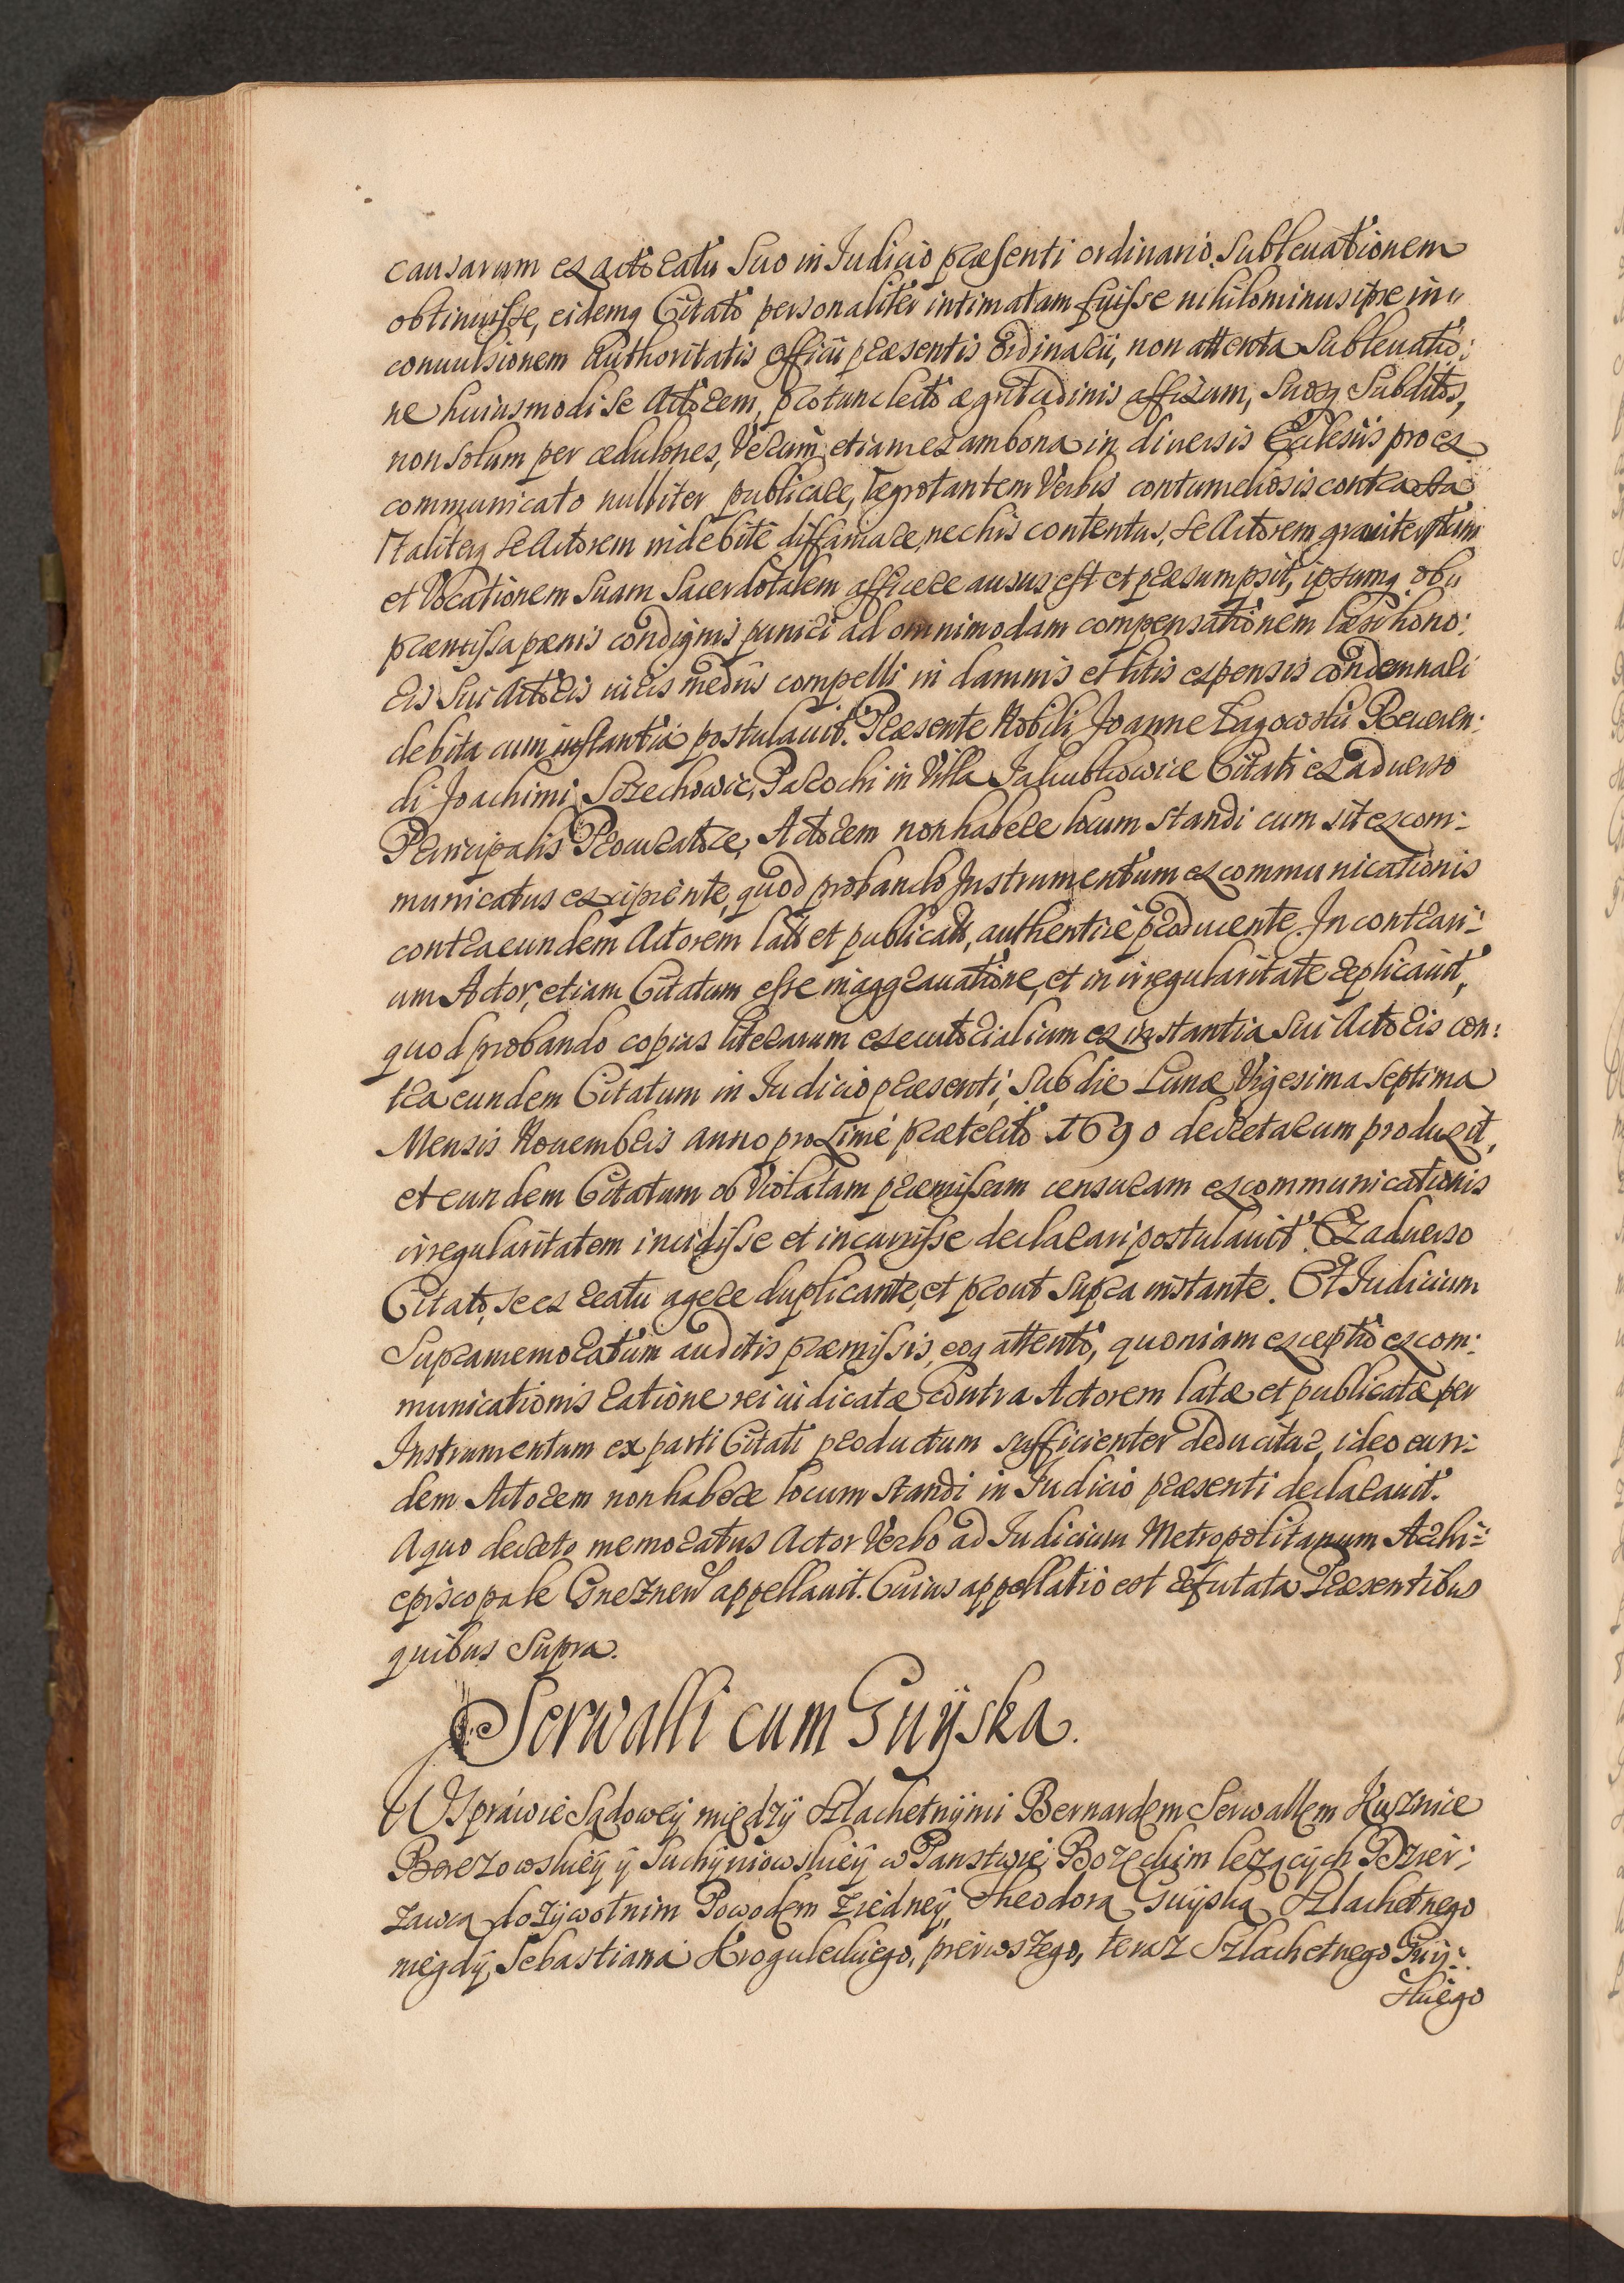 causarum ex actoratu Suo in Judicio præsenti ordinario Subleuationem
obtinuisse, eidemq Citato personaliter intimatam fuisse nihilominus ipse in
conuulsionem Authoritatis officii præsentis Ordinarii, non attenta Subleuatio:
ne huiusmodi Se Actorem, protunc lecto ægritudinis affixum, Suosq Subditos,
non Solum per cedulones, Verum etiam ex ambona in diuersis Ecclesiis pro ex
communicato nulliter publicare, ægrotantem Verbis contumeliosis contracta
Taliterq Se Actorem indebite diffamare, nec his contentus, Se Actorem grauiter
et Vocationem Suam Sacerdotalem afficere ausus est et præsumpsit, ipsumq ob
præmissa pænis condignis puniri ad omnimodam compensationem læsi hono:
ris Sui Actoris iuris mediis compelli in damnis et litis expensis condemnari
debita cum instantia postulauit. Præsente Nobili Joanne Łagowski Reueren:
di Joachimi Szrechowic, Parochi in Villa Jakubkowice Citati ex aduerso
Principalis Procuratore, Actorem non habere locum standi cum sit excom:
municatus excipiente, quod probando Instrumentum excommunicationis
contra eundem Actorem latæ et publicatæ, authentice producente. In contrari:
um Actor, etiam Citatum esse in aggrauatione, et in irregularitate replicauit,
quod probando copias literarum executorialium ex instantia Sui Actoris con:
tra eundem Citatum in Judicio præsenti, Sub die Lunæ Vigesima Septima
Mensis Nouembris anno proxime præterito 1690 decretarum produxit,
et eundem Citatum ob Violatam præmissam censuram excommunicationis
irregularitatem incidisse et incurrisse declarari postulauit. Ex aduerso
Citato, Se ex reatu agere duplicante, et prout Supra instante. Et Judicium
Supramemoratum auditis præmissis, eoq attento, quoniam exceptio excom:
municationis ratione rei iudicatæ contra Actorem latæ et publicatæ per
Instrumentum ex parti Citati productum sufficienter deducitur, ideo eun:
dem Actorem non habere locum standi in Judicio præsenti declarauit.
A quo decreto memoratus Actor Verbo ad Judicium Metropolitanum Archi:
episcopale Gneznen appellauit. Cuius appellatio est refutata Præsentibus
quibus Supra.
Serwalli cum Guÿska.
W Sprawie Sądoweÿ międzÿ Szlachetnÿmi Bernardem Serwallem Kuznice
Borezowskieÿ ÿ Suchÿniowskieÿ w Panstwie Bozęckim lezącÿch Dzier:
zawcą dozÿwotnim Powodem ziedneÿ, Theodorą Guÿską Szlachetnego
niegdÿ Sebastiana Kroguleckiego, pierwszego, teraz Szlachetnego Guÿ:
Skiego